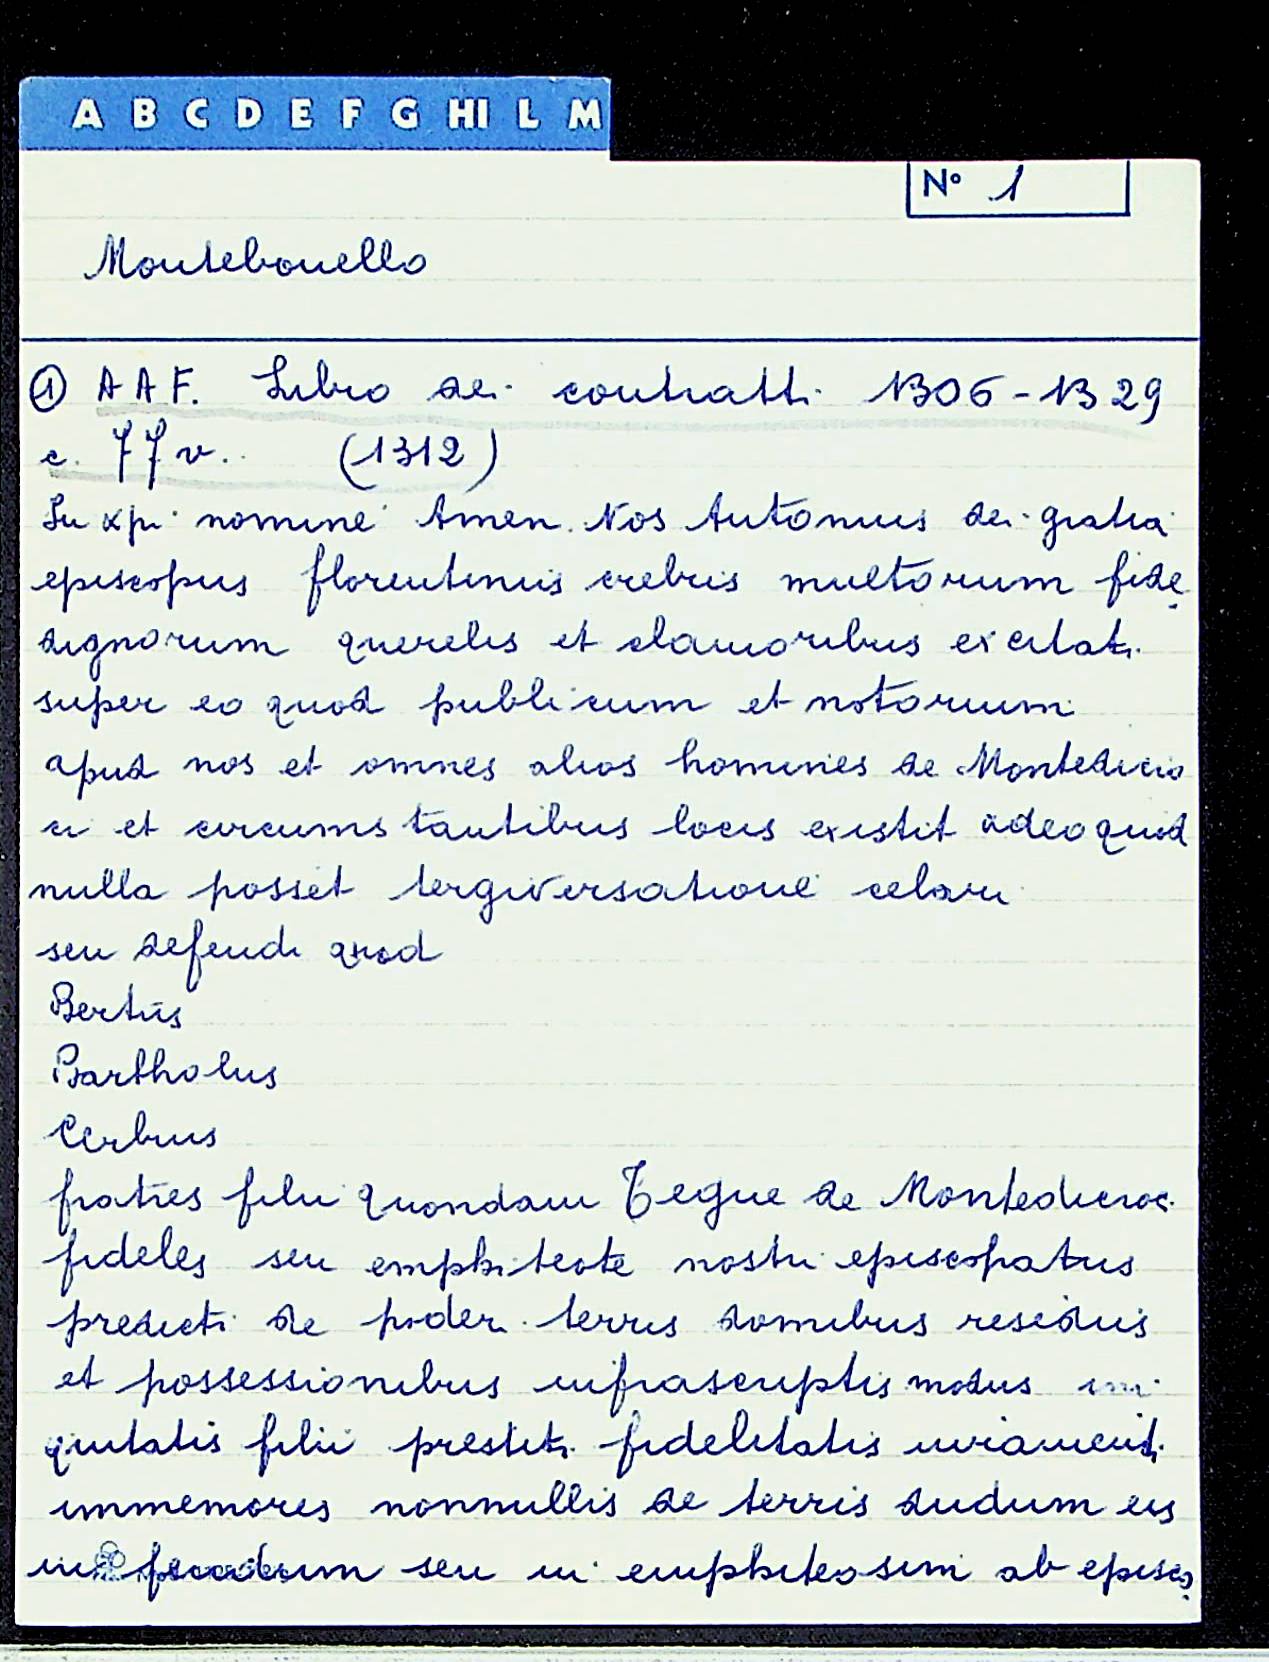 A B C D E F G HI L M
N° 1
Montebonello
① A A F. Libro dei contratti 1306-1329
c. 77v. (1312)
In xpi nomine Amen. Nos Antonius dei gratia
episcopus florentinus crebris multorum fide
dignorum querelis et clamoribus excitati
super eo quod publicum et notorium
apud nos et omnes alios homines de Montedicro
ci et circumstantibus locis existit adeo quod
nulla posset tergiversatione celari
seu defendi quod
Bertus
Bartholus
Cerbius
fratres filii quondam Tegue de Montedicroc.
fideles seu emphiteote nostri episcopatus
predicti de poderi terris domibus residiis
et possessionibus infrascriptis modus ini
quitatis filii prestiti fidelitatis iuriamenti
immemores nonnullis de terris dudum eis
in feudum seu in emphiteosim ab episco